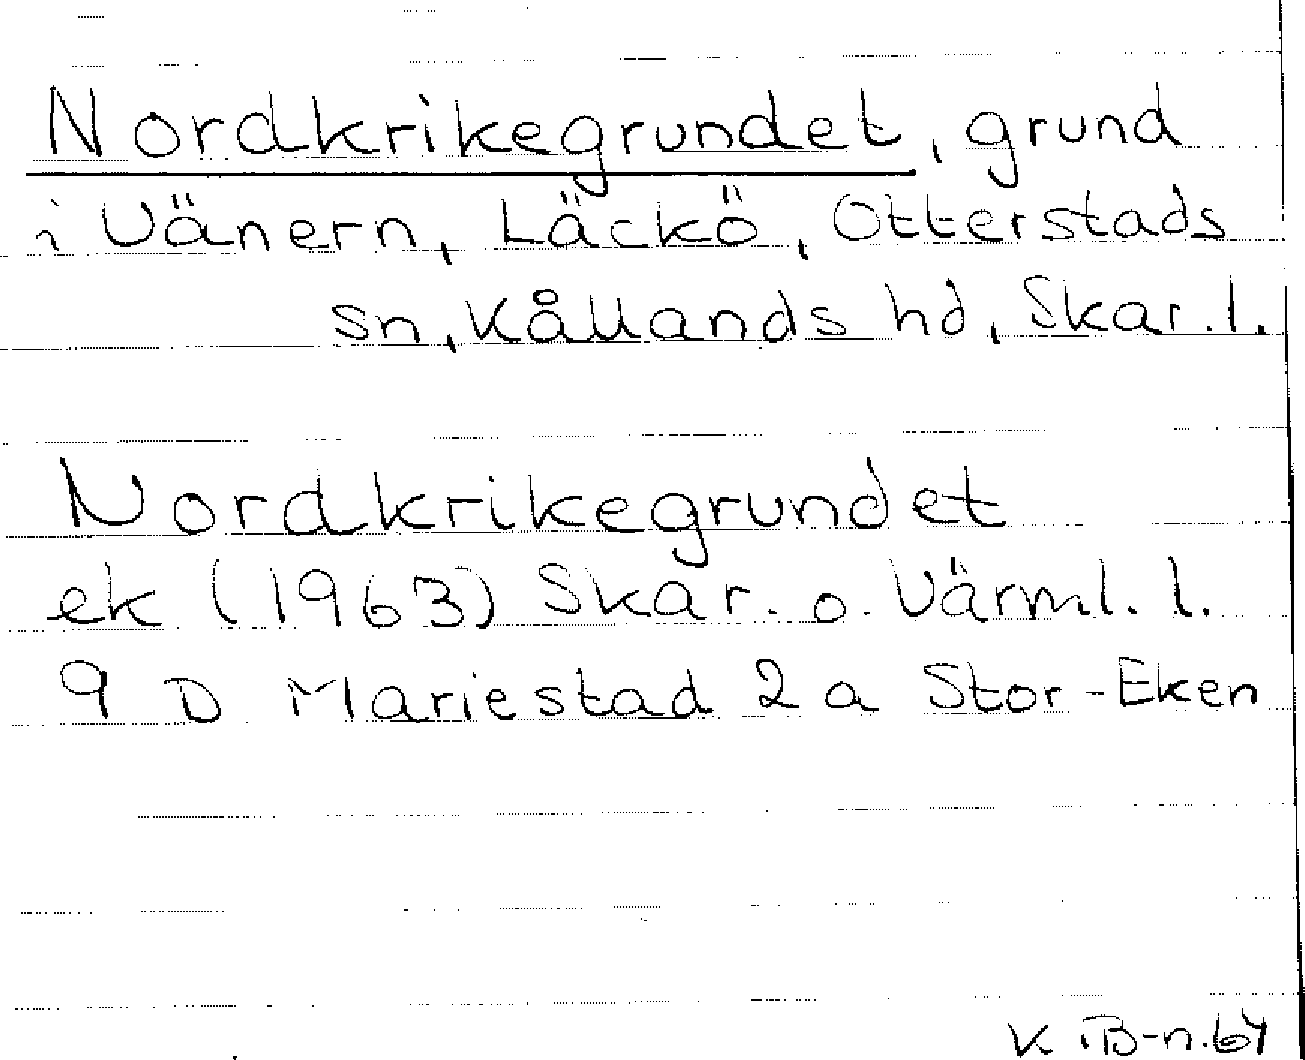 Nordkrikegrundet, grund
i Vänern, Läckö, Otterstads
sn, Kållands hd, Skar. l.
Nordkrikegrundet
ek (1963) Skar. o. Värml. l.
9 D Mariestad 2 a Stor-Eken
K. B-n. 64